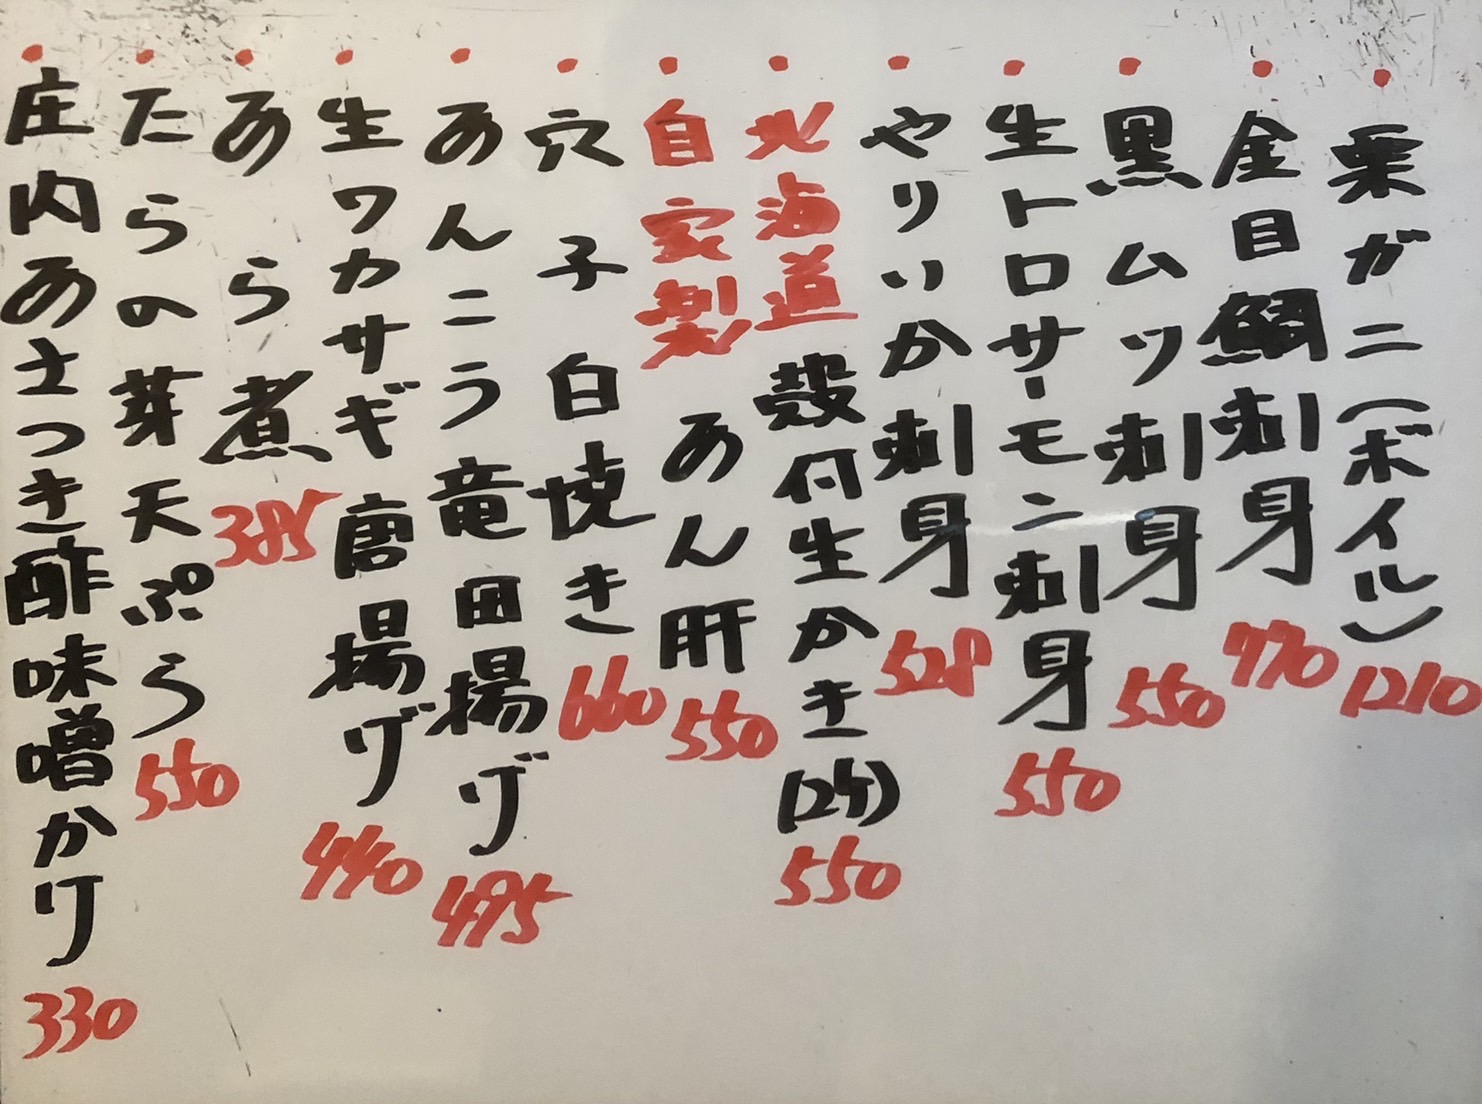 ・栗ガニ(ボイル) 1210
・金目鯛刺身 770
・黒ムツ刺身 550
・生トロサーモン刺身 550
・やりいか刺身 528
・北海道殻付生かき(2ケ) 550
・自家製あん肝 550
・穴子白焼き 660
・あんこう竜田揚げ 495
・生ワカサギ唐揚げ 440
・あら煮 385
・たらの芽天ぷら 550
・庄内あさつき酢味噌かけ 330